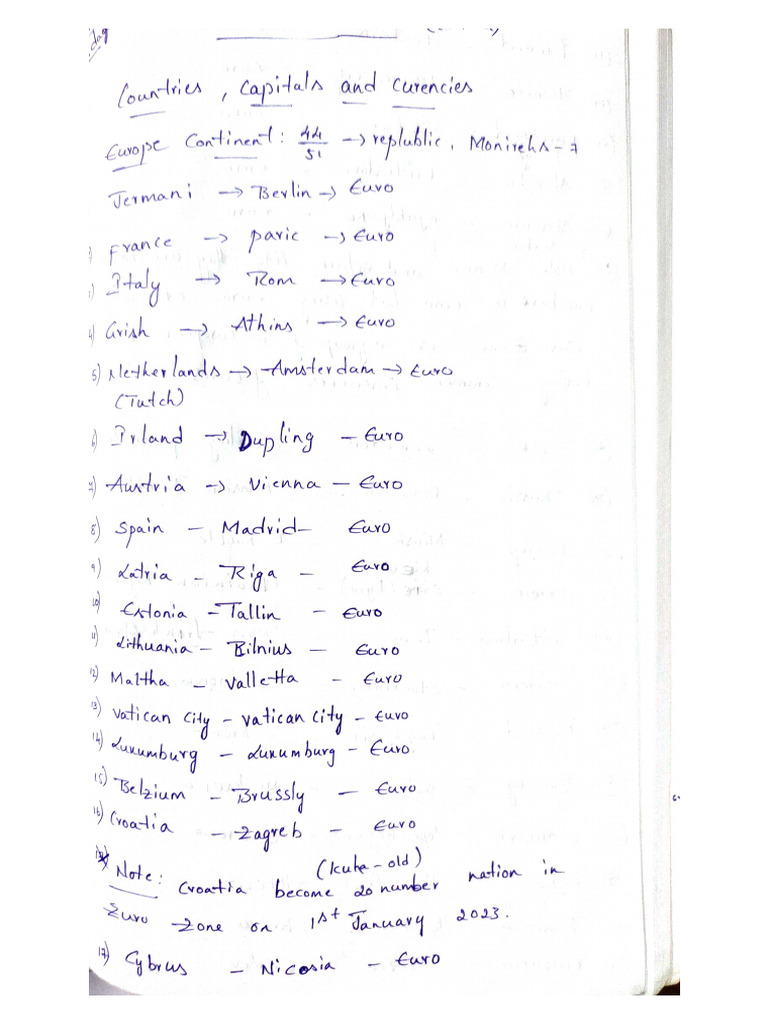 day
Countries, Capitals and Curencies
Europe Continent: 44/51 → replublic. Monirehs - 7
Jermani → Berlin → Euro
2) France → paric → Euro
3) Italy → Rom → Euro
4) Grish → Athins → Euro
5) Netherlands → Amsterdam → Euro
(Tutch)
6) Irland → Dupling - Euro
7) Austria → Vienna - Euro
8) Spain - Madrid - Euro
9) Latria - Riga - Euro
10) Estonia - Tallin - Euro
11) Lithuania - Bilnius - Euro
12) Maltha - Valletta - Euro
13) Vatican City - Vatican City - Euro
14) Luxumburg - Luxumburg - Euro.
15) Belzium - Brussly - Euro
16) Croatia - Zagreb - Euro
(kuha - old)
Note: Croatia become 20 number nation in
Euro Zone on 1st January 2023.
17) Cybrus - Nicosia - Euro